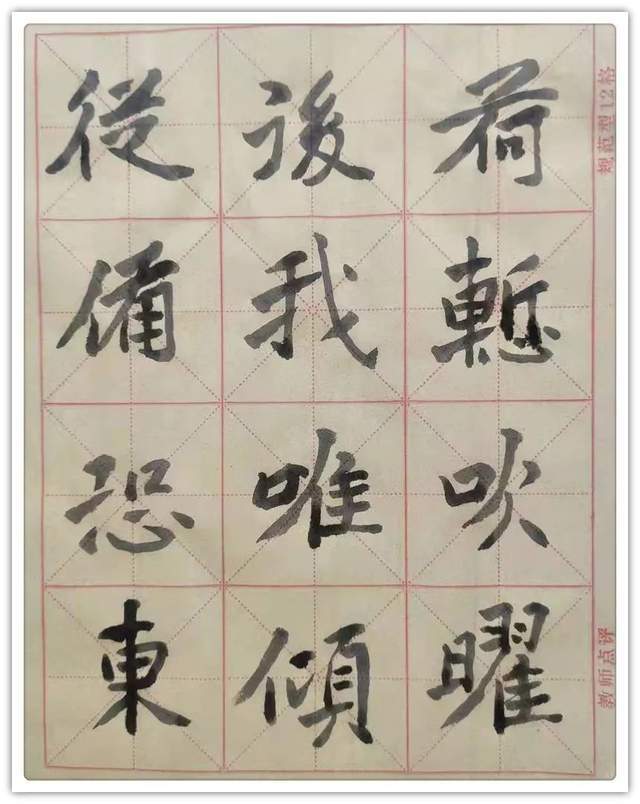 规范型12格
教师点评
荷慙吹曜
後我唯傾
從備恐東